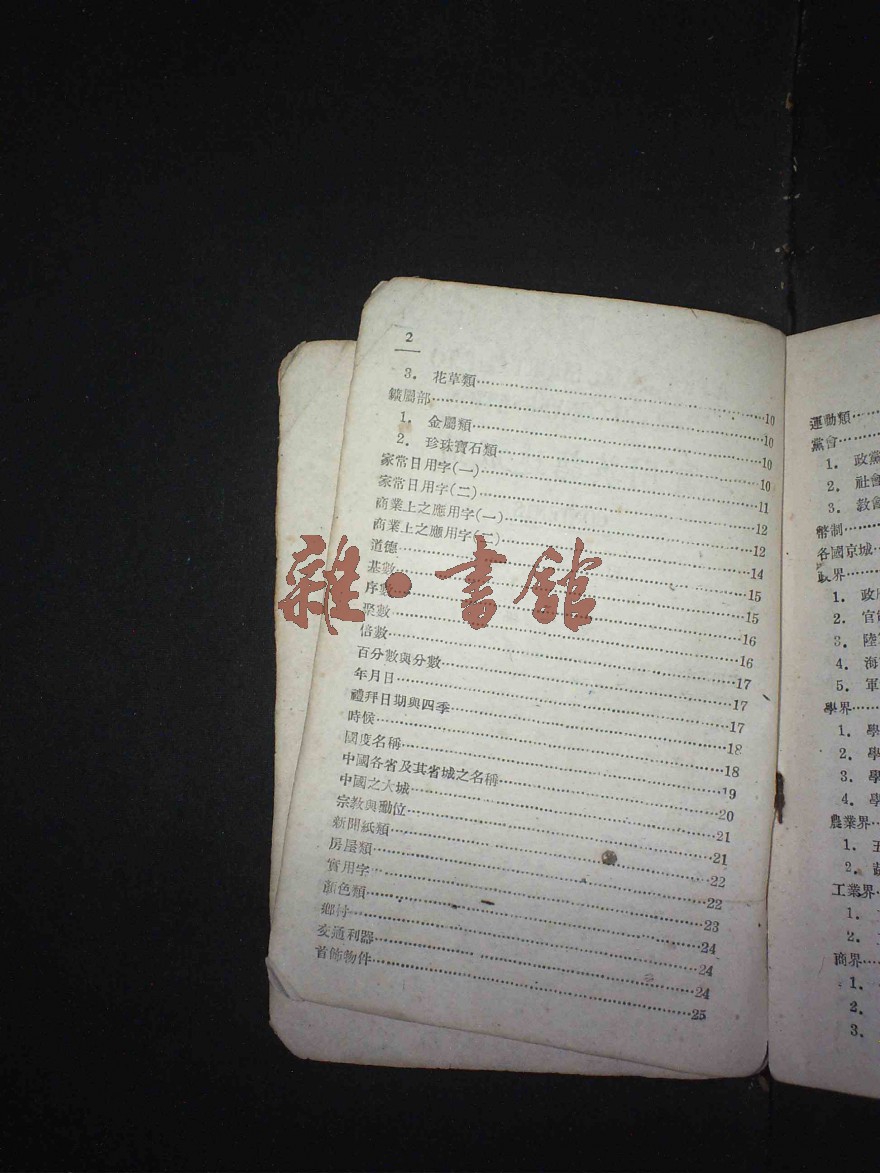 2
3. 花草類……10
鑛屬部……10
1. 金屬類……10
2. 珍珠寶石類……10
家常日用字(一)……11
家常日用字(二)……12
商業上之應用字(一)……12
商業上之應用字(二)……14
道德……15
基數……15
序數……16
聚數……16
倍數……17
百分數與分數……17
年月日……17
禮拜日期與四季……18
時候……18
國度名稱……19
中國各省及其省城之名稱……20
中國之大城……21
宗教與勳位……21
新聞紙類……22
房屋類……22
實用字……23
顏色類……24
鄉村……24
交通利器……24
首飾物件……25
運動類……
黨會……
1. 政黨
2. 社會
3. 教會
幣制……
各國京城…
政界……
1. 政
2. 官
3. 陸
4. 海
5. 軍
學界……
1. 學
2. 學
3. 學
4. 學
農業界…
1. 五
2.
工業界…
1.
2.
商界……
1.
2.
3.
雜·書館